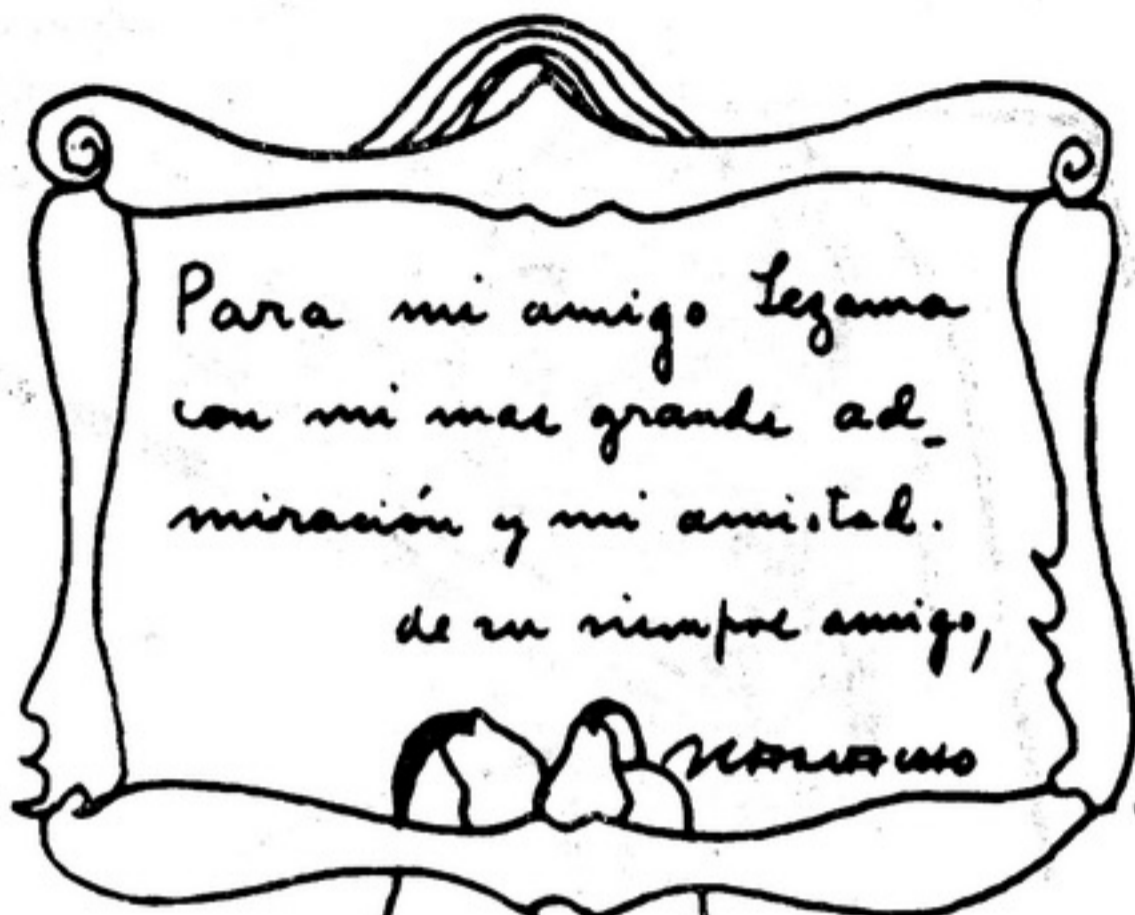 Para mi amigo Lezama
con mi mas grande ad-
miración y mi amistad.
de su siempre amigo,